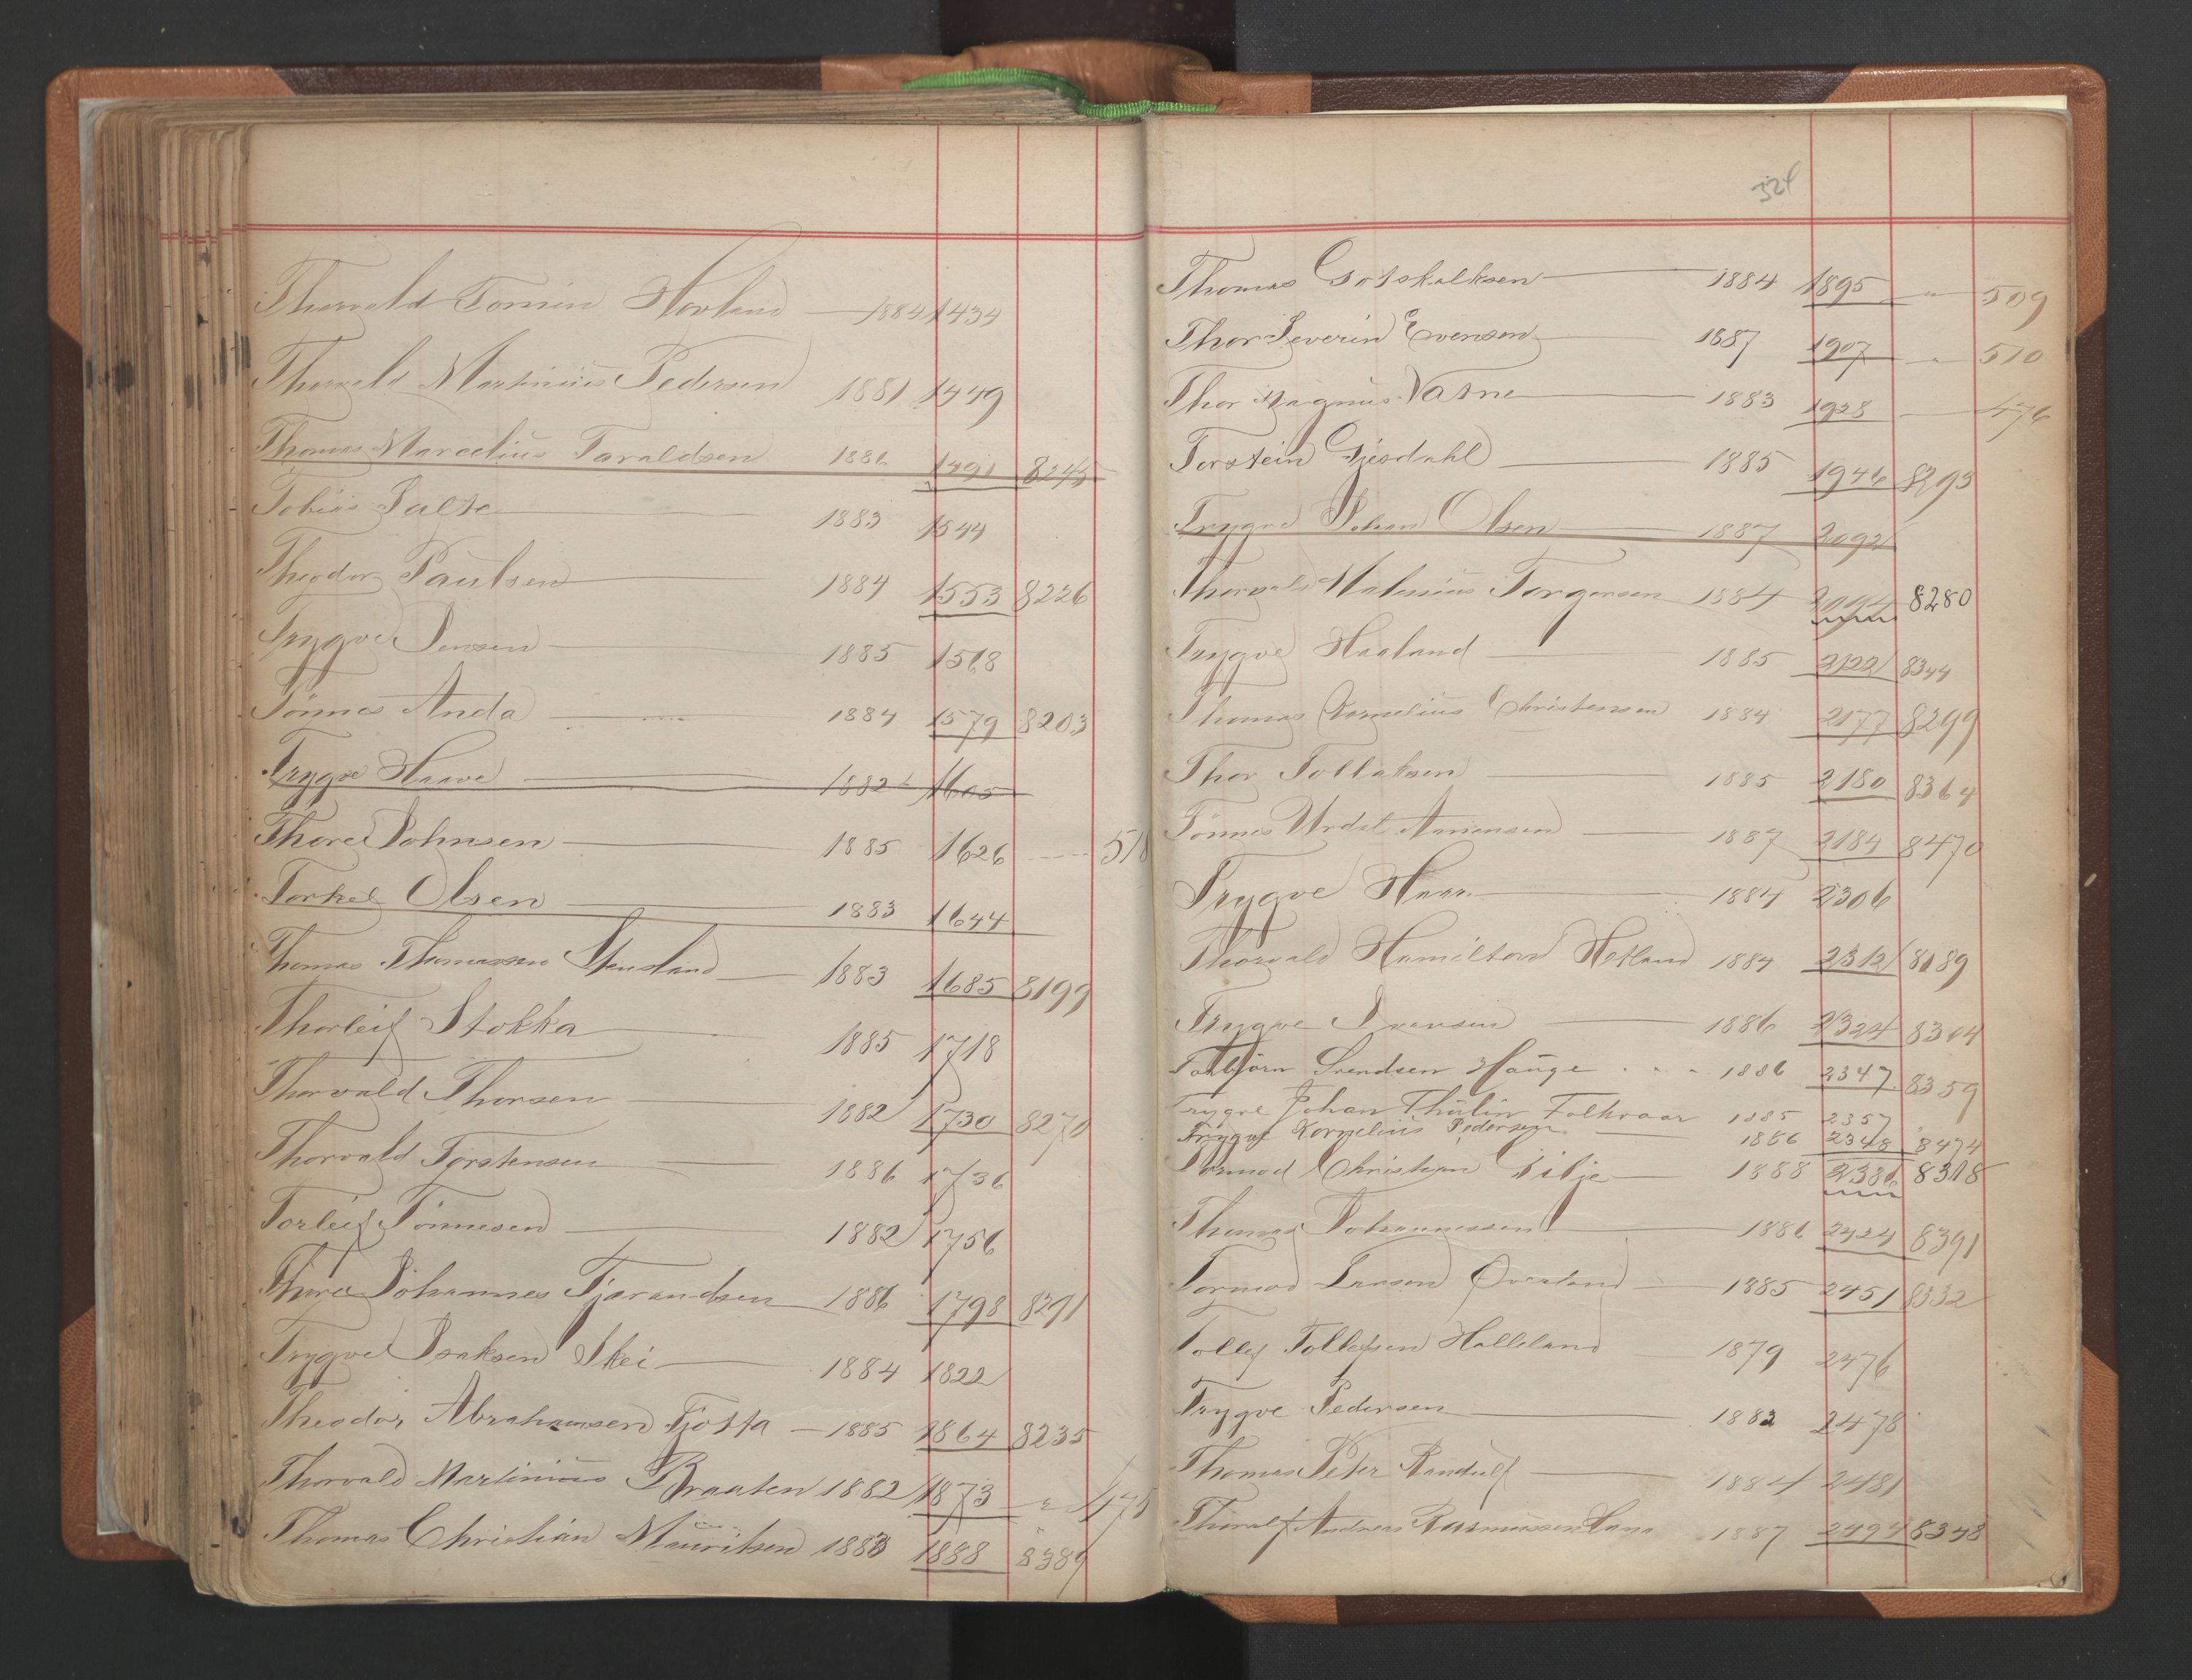 Thorvald Tomin Hovland 1884 1434
Thorvald Martinius Pedersen 1881 1449
Thomas Marcelius Taraldsen 1881 1491 8245
Tobias Salte 1883 1544
Theodor Paulsen 1884 1553 8226
Trygve Jensen 1885 1568
Tönnes Anda 1884 1579 8203
Trygve Haave 1882 1605
Thore Johnsen 1885 1626 518
Torkel Olsen 1883 1644
Thomas Thomassen Stensland 1883 1685 8199
Thorleif Stokka 1885 1718
Thorvald Thorsen 1882 1730 8270
Thorvald Torstensen 1886 1736
Torleif Tönnesen 1882 1756
Thore Johannes Tjerandsen 1886 1798 8291
Trygve Isaksen Skei 1884 1822
Theodor Abrahamsen Tjosta 1885 1864 8235
Thorvald Martinius Braaten 1882 1873 " 475
Thomas Christian Mauritsen 1883 1888 8389
321
Thomas Gotskalksen 1884 1895 " 509
Thor Severin Evensen 1887 1907 " 510
Thor Magnus Vatne 1883 1928 476
Torstein Gjesdahl 1885 1946 8293
Trygve Johan Olsen 1887 2092
Thorvald Malenius Torgersen 1884 8280
Trygve Haaland 1885 2122 8344
Thomas Kornelius Christensen 1884 2177 8299
Thor Tollaksen 1885 2180 8364
Tönnes Urdal 1887 2184 8470
Trygve Haar 1884 2306
Thorvald Hamilton Hetland 1884 2312 8189
Trygve Iversen 1886 2324 8304
Torbjörn Svendsen Hauge 1886 2347 8359
Trygve Johan Thulin Folkvaar 1885 2357
Trygve Kornelius Pedersen 1886 2348 8474
Tormod Christian Gilje 1888 2386 8318
Thomas Johannessen 1886 2424 8391
Tormod Larsen Overland 1885 2451 8332
Tollef Tollefsen Halleland 1879 2476
Trygve Pedersen 1882 2478
Thomas Peter Randulf 1884 2481
Thoralf Andreas Rasmussen Lana 1887 2494 8348